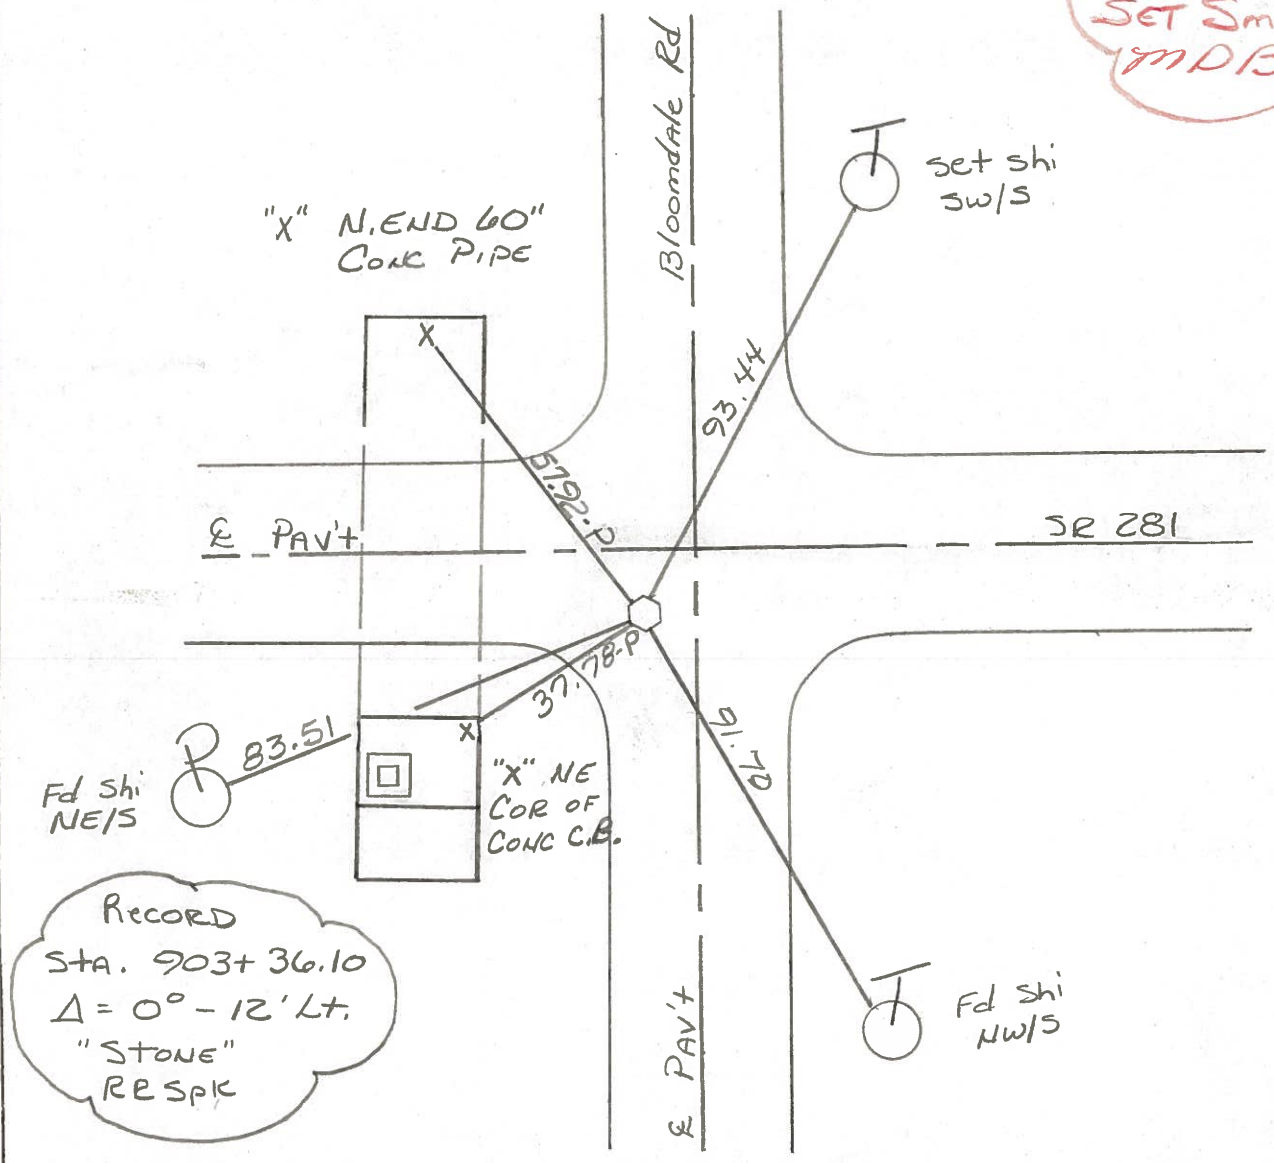 SET Sm
MDB
Bloomdale Rd
set shi
SW/S
"X" N. END 60"
CONC PIPE
93.44
57.92-P
℄ PAV't
SR 281
37.78-P
83.51
91.70
Fd Shi
NE/S
X
X
"X" NE
COR OF
CONC C.B.
RECORD
Sta. 903+36.10
Δ = 0° - 12' Lt.
"STONE"
RR Spk
Fd Shi
NW/S
℄ PAV't